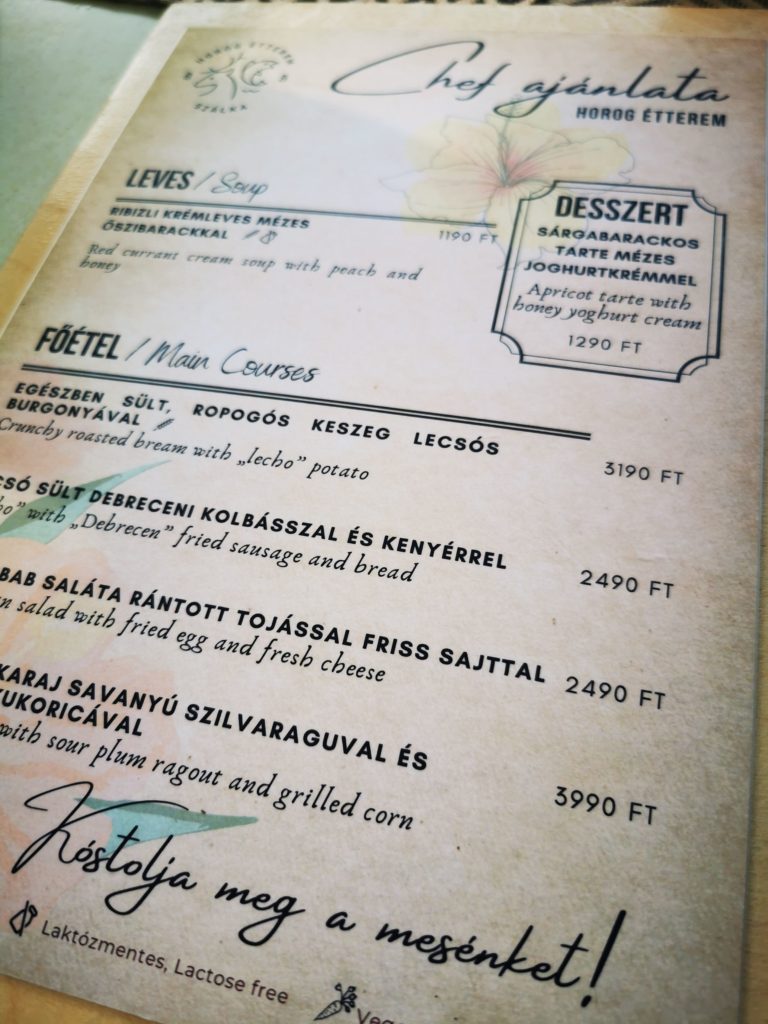 HOROG ÉTTEREM
SZÁLKA
Chef ajánlata
HOROG ÉTTEREM
LEVES / Soup
RIBIZLI KRÉMLEVES MÉZES
ŐSZIBARACKKAL
1190 FT
Red currant cream soup with peach and
honey
DESSZERT
SÁRGABARACKOS
TARTE MÉZES
JOGHURTKRÉMMEL
Apricot tarte with
honey yoghurt cream
1290 FT
FŐÉTEL / Main Courses
EGÉSZBEN SÜLT, ROPOGÓS KESZEG LECSÓS
BURGONYÁVAL
3190 FT
Crunchy roasted bream with „lecho” potato
CSÓ SÜLT DEBRECENI KOLBÁSSZAL ÉS KENYÉRREL
2490 FT
ho” with „Debrecen” fried sausage and bread
BAB SALÁTA RÁNTOTT TOJÁSSAL FRISS SAJTTAL
2490 FT
n salad with fried egg and fresh cheese
KARAJ SAVANYÚ SZILVARAGUVAL ÉS
KUKORICÁVAL
3990 FT
with sour plum ragout and grilled corn
Kóstolja meg a mesénket!
Laktózmentes, Lactose free
Veg